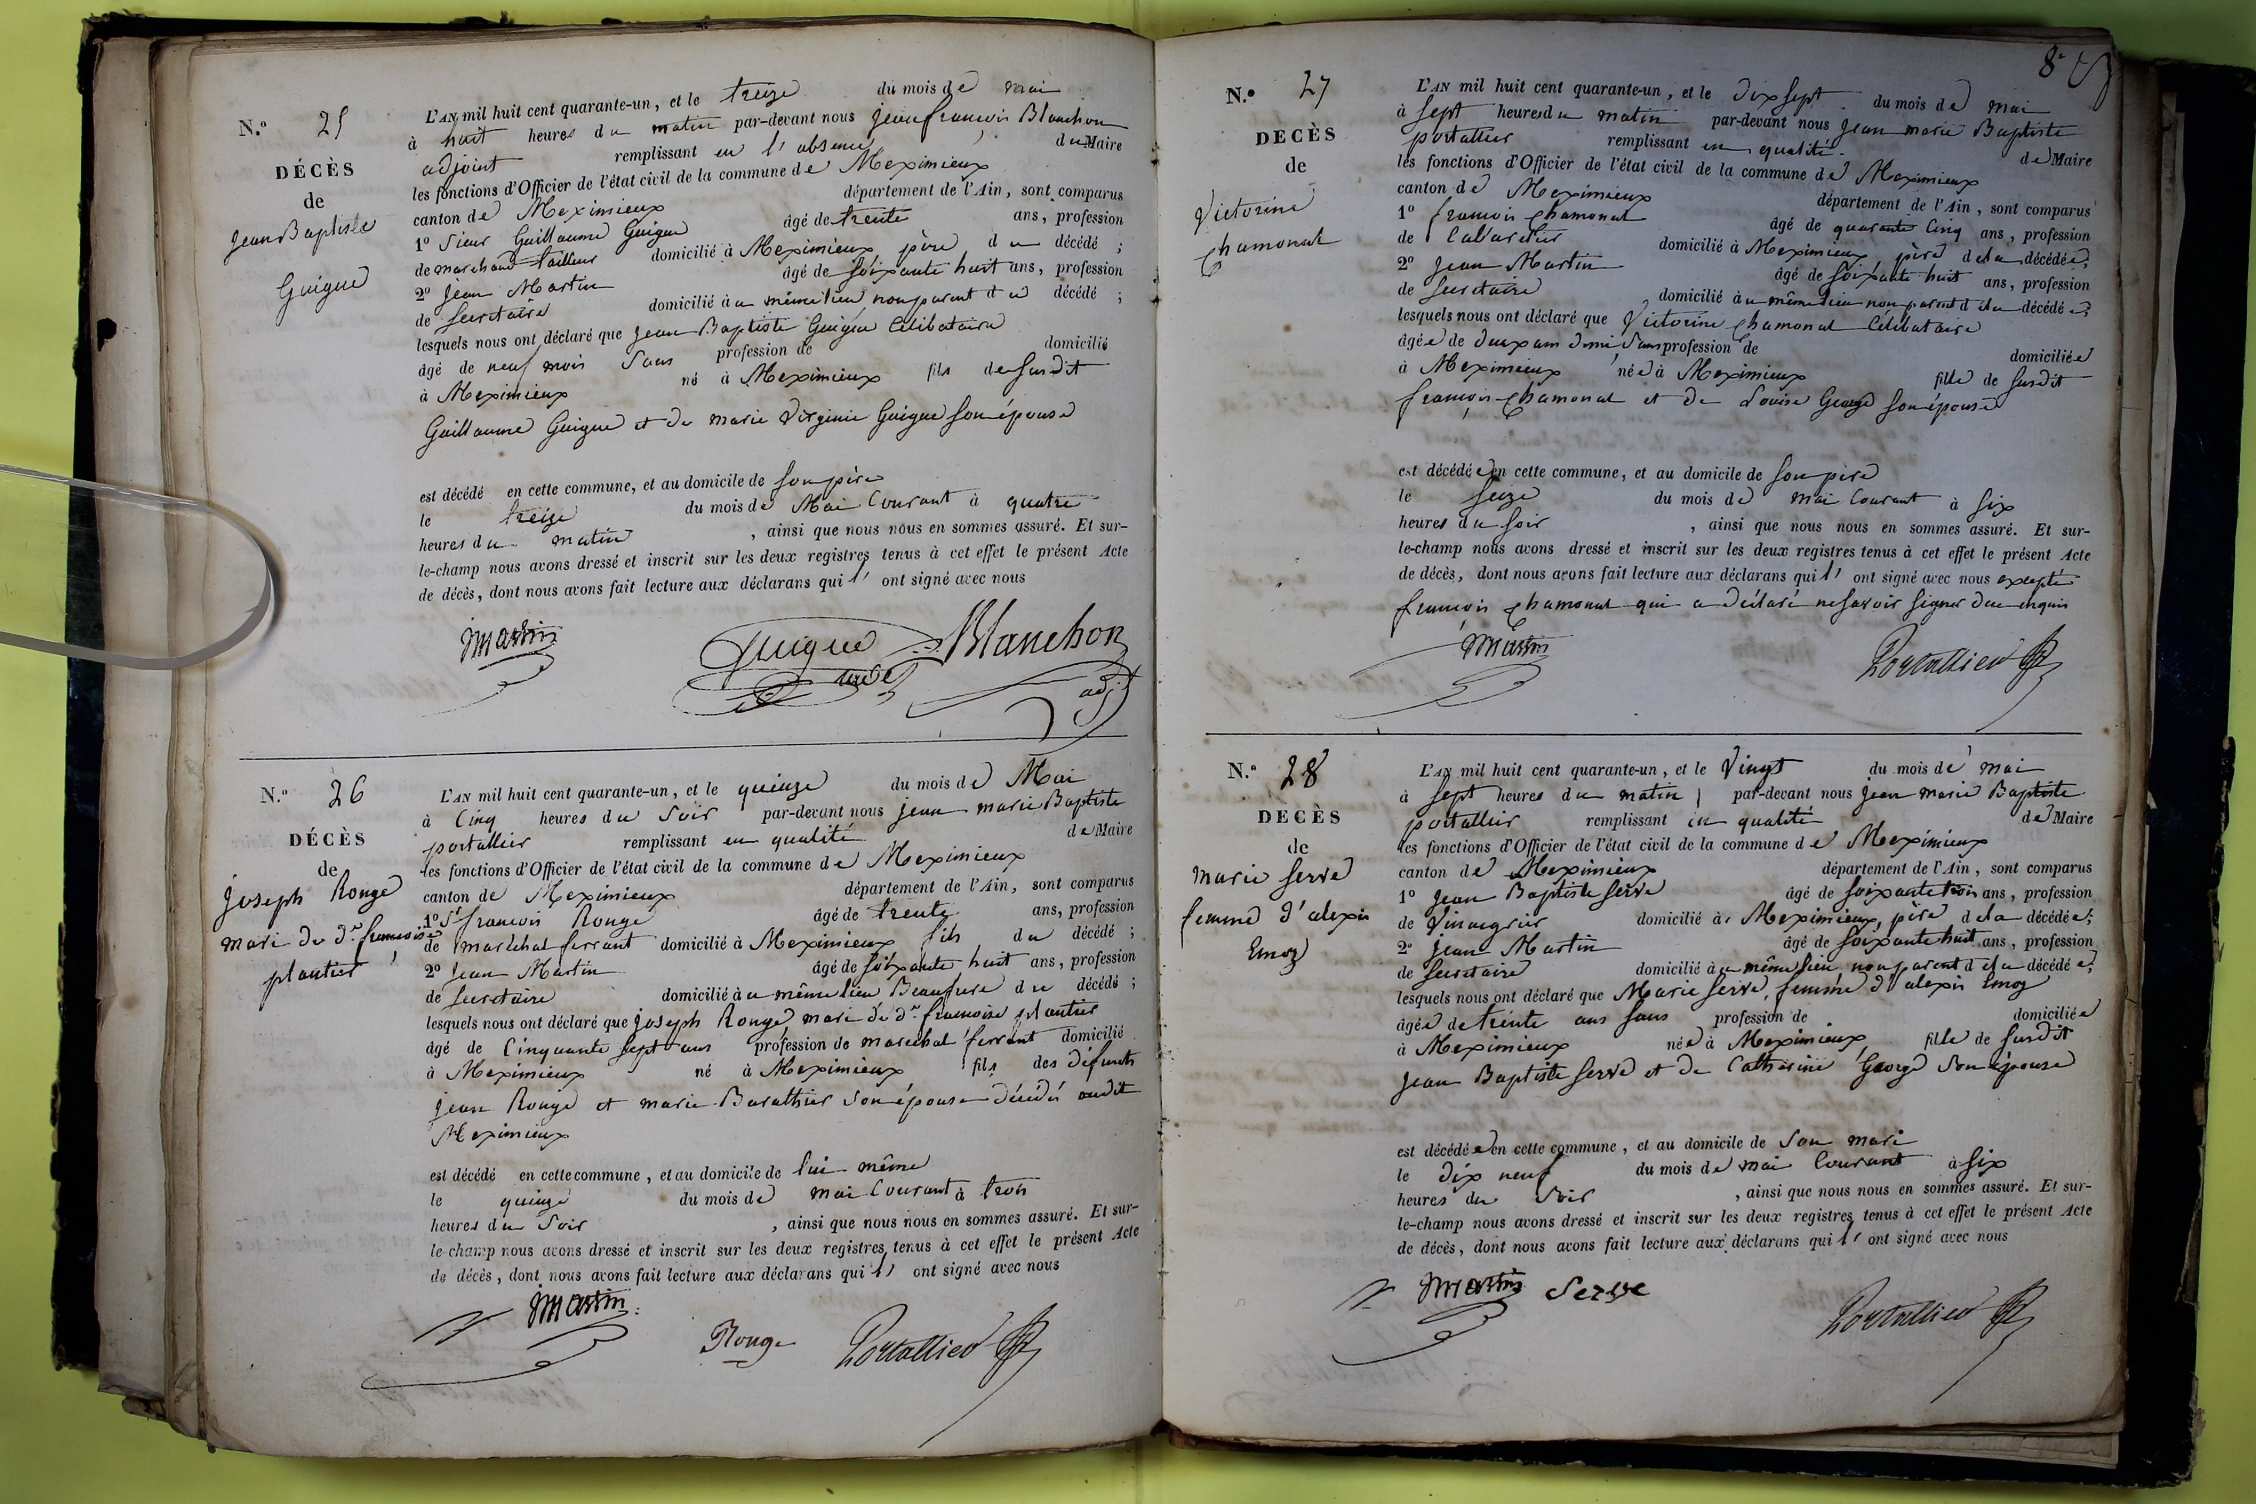 N.o 25
DÉCÈS
de
Jean Baptiste
Guigue
L'AN mil huit cent quarante-un, et le treize du mois de mai
à huit heures du matin par-devant nous jean françois Blanchon
adjoint remplissant en l'absence du Maire
les fonctions d'Officier de l'état civil de la commune de Meximieux
canton de Meximieux département de l'Ain, sont comparus
1o Sieur Guillaume Guigue âgé de trente ans, profession
de marchand tailleur domicilié à Meximieux père du décédé ;
2o Jean Martin âgé de soixante huit ans, profession
de secretaire domicilié au même lieu non parent du décédé ;
lesquels nous ont déclaré que jean Baptiste Guigue Célibataire
âgé de neuf mois sans profession de domicilié
à Meximieux né à Meximieux fils de susdit
Guillaume Guigue et de marie Virginie Guigue son épouse
est décédé en cette commune, et au domicile de son père
le treize du mois de Mai Courant à quatre
heures du matin , ainsi que nous nous en sommes assuré. Et sur-
le-champ nous avons dressé et inscrit sur les deux registres tenus à cet effet le présent Acte
de décès, dont nous avons fait lecture aux déclarans qui l' ont signé avec nous
Martin Guigue Blanchon
adj
N.o 26
DÉCÈS
de
joseph Rouge
mari de de françoise
plantier
L'AN mil huit cent quarante-un, et le quinze du mois de Mai
à Cinq heures du Soir par-devant nous jean marie Baptiste
portallier remplissant en qualité de Maire
les fonctions d'Officier de l'état civil de la commune de Meximieux
canton de Meximieux département de l'Ain, sont comparus
1o Sr francois Rouge âgé de trente ans, profession
de marechal ferrant domicilié à Meximieux fils du décédé ;
2o Jean Martin âgé de soixante huit ans, profession
de secretaire domicilié au même lieu Beaufrere du décédé ;
lesquels nous ont déclaré que joseph Rouge mari de de francoise plantier
âgé de Cinquante sept ans profession de marechal ferrant domicilié
à Meximieux né à Meximieux fils des défunts
jean Rouge et marie Barathier son épouse décédés audit
Meximieux
est décédé en cette commune, et au domicile de lui même
le quinze du mois de mai Courant à trois
heures du Soir , ainsi que nous nous en sommes assuré. Et sur-
le-champ nous avons dressé et inscrit sur les deux registres tenus à cet effet le présent Acte
de décès, dont nous avons fait lecture aux déclarans qui l' ont signé avec nous
Martin
Rouge Portallier
8
N.o 27
DECÈS
de
Victorine
Chamonal
L'AN mil huit cent quarante-un, et le dix sept du mois de mai
à sept heures du matin par-devant nous jean marie Baptiste
portallier remplissant en qualité de Maire
les fonctions d'Officier de l'état civil de la commune de Meximieux
canton de Meximieux département de l'Ain, sont comparus
1o françois Chamonal âgé de quarante Cinq ans, profession
de Cabaretier domicilié à Meximieux père de la décédée;
2o Jean Martin âgé de soixante huit ans, profession
de secretaire domicilié au même lieu non parent de la décédée;
lesquels nous ont déclaré que Victorine Chamonal Célibataire
âgée de deux ans demi sans profession de domiciliée
à Meximieux née à Meximieux fille de susdit
françois Chamonal et de Louise George son épouse
est décédée en cette commune, et au domicile de son père
le seize du mois de mai Courant à six
heures du soir , ainsi que nous nous en sommes assuré. Et sur-
le-champ nous avons dressé et inscrit sur les deux registres tenus à cet effet le présent Acte
de décès, dont nous avons fait lecture aux déclarans qui l' ont signé avec nous excepté
françois Chamonal qui a déclaré ne savoir signer de ce enquis
Martin
Portallier
N.o 28
DECÈS
de
marie serve
femme d'alexis
Emoz
L'AN mil huit cent quarante-un, et le Vingt du mois de mai
à sept heures du matin par-devant nous jean marie Baptiste
portallier remplissant en qualité de Maire
les fonctions d'Officier de l'état civil de la commune de Meximieux
canton de Meximieux département de l'Ain, sont comparus
1o Jean Baptiste serve âgé de soixante trois ans, profession
de Vinaigrier domicilié à Meximieux, père de la décédée;
2o Jean Martin âgé de soixante huit ans, profession
de secretaire domicilié au même lieu non parent de la décédée;
lesquels nous ont déclaré que Marie serve, femme d'alexis Emoz
âgée de trente ans sans profession de domiciliée
à Meximieux née à Meximieux fille de susdit
Jean Baptiste serve et de Catherine George son épouse
est décédée en cette commune, et au domicile de son mari
le dix neuf du mois de mai Courant à six
heures du Soir , ainsi que nous nous en sommes assuré. Et sur-
le-champ nous avons dressé et inscrit sur les deux registres tenus à cet effet le présent Acte
de décès, dont nous avons fait lecture aux déclarans qui l' ont signé avec nous
Martin Serve
Portallier